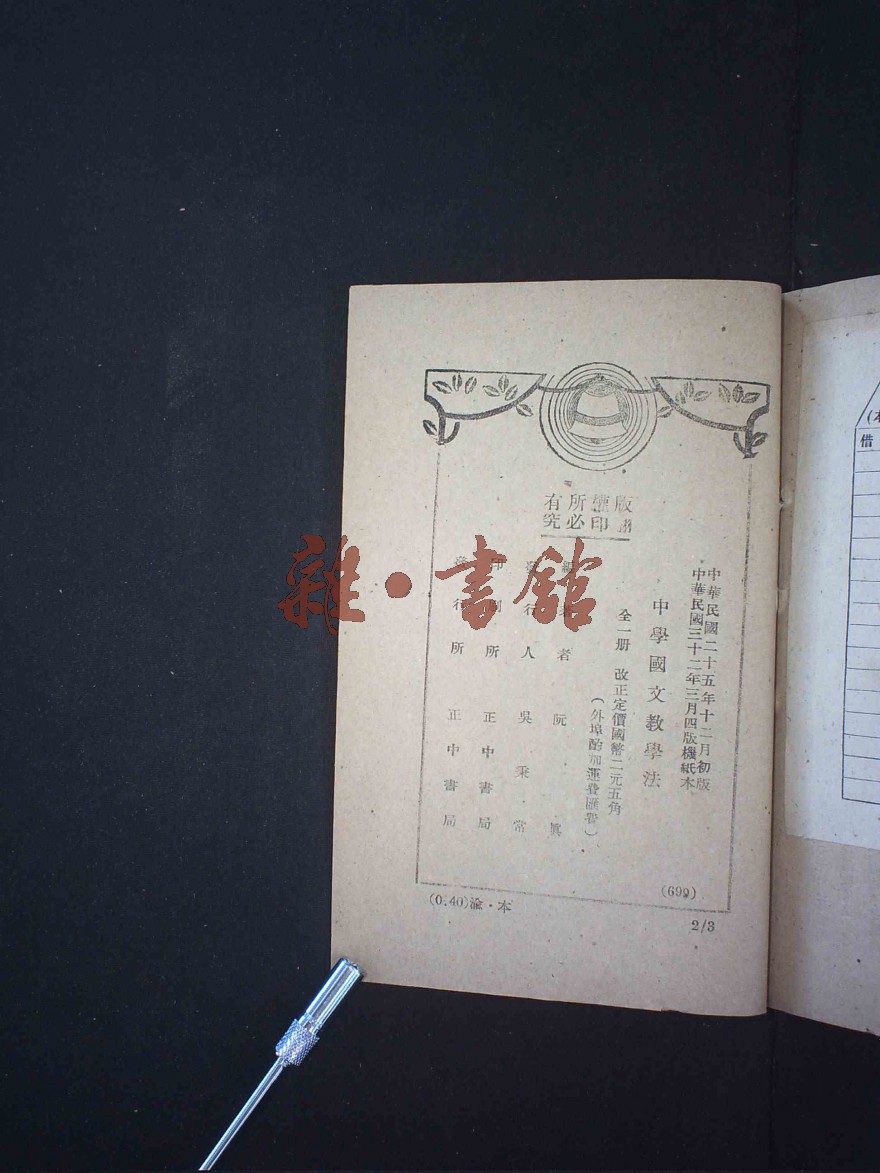 版權所有
翻印必究
中華民國二十五年十二月初版
中華民國三十二年三月四版機紙本
中學國文教學法
全一册 改正定價國幣二元五角
(外埠酌加運費匯費)
編著者 阮眞
發行人 吳秉常
印刷所 正中書局
發行所 正中書局
(699)
(0.40)渝·本
2/3
雜·書館
(本
借